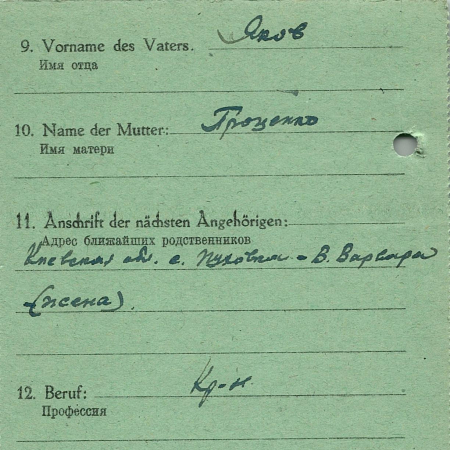 9. Vorname des Vaters. Яков
Имя отца
10. Name der Mutter: Проценко
Имя матери
11. Anschrift der nächsten Angehörigen:
Адрес ближайших родственников
Киевская обл. с. Пуховка - В. Варвара
(жена).
12. Beruf: Кр-н
Профессия